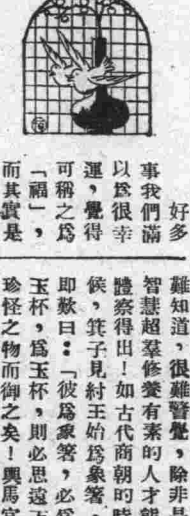 好多
事我們滿
以爲很幸
運，覺得
可稱之爲
「福」，
而其實是
難知道，很難警覺，除非是
智慧超羣修養有素的人才能
體察得出！如古代商朝的時
候，箕子見紂王始爲象箸，
即歎曰：「彼爲象箸，必爲
玉杯，爲玉杯，則必思遠方
珍怪之物而御之矣！輿馬宮